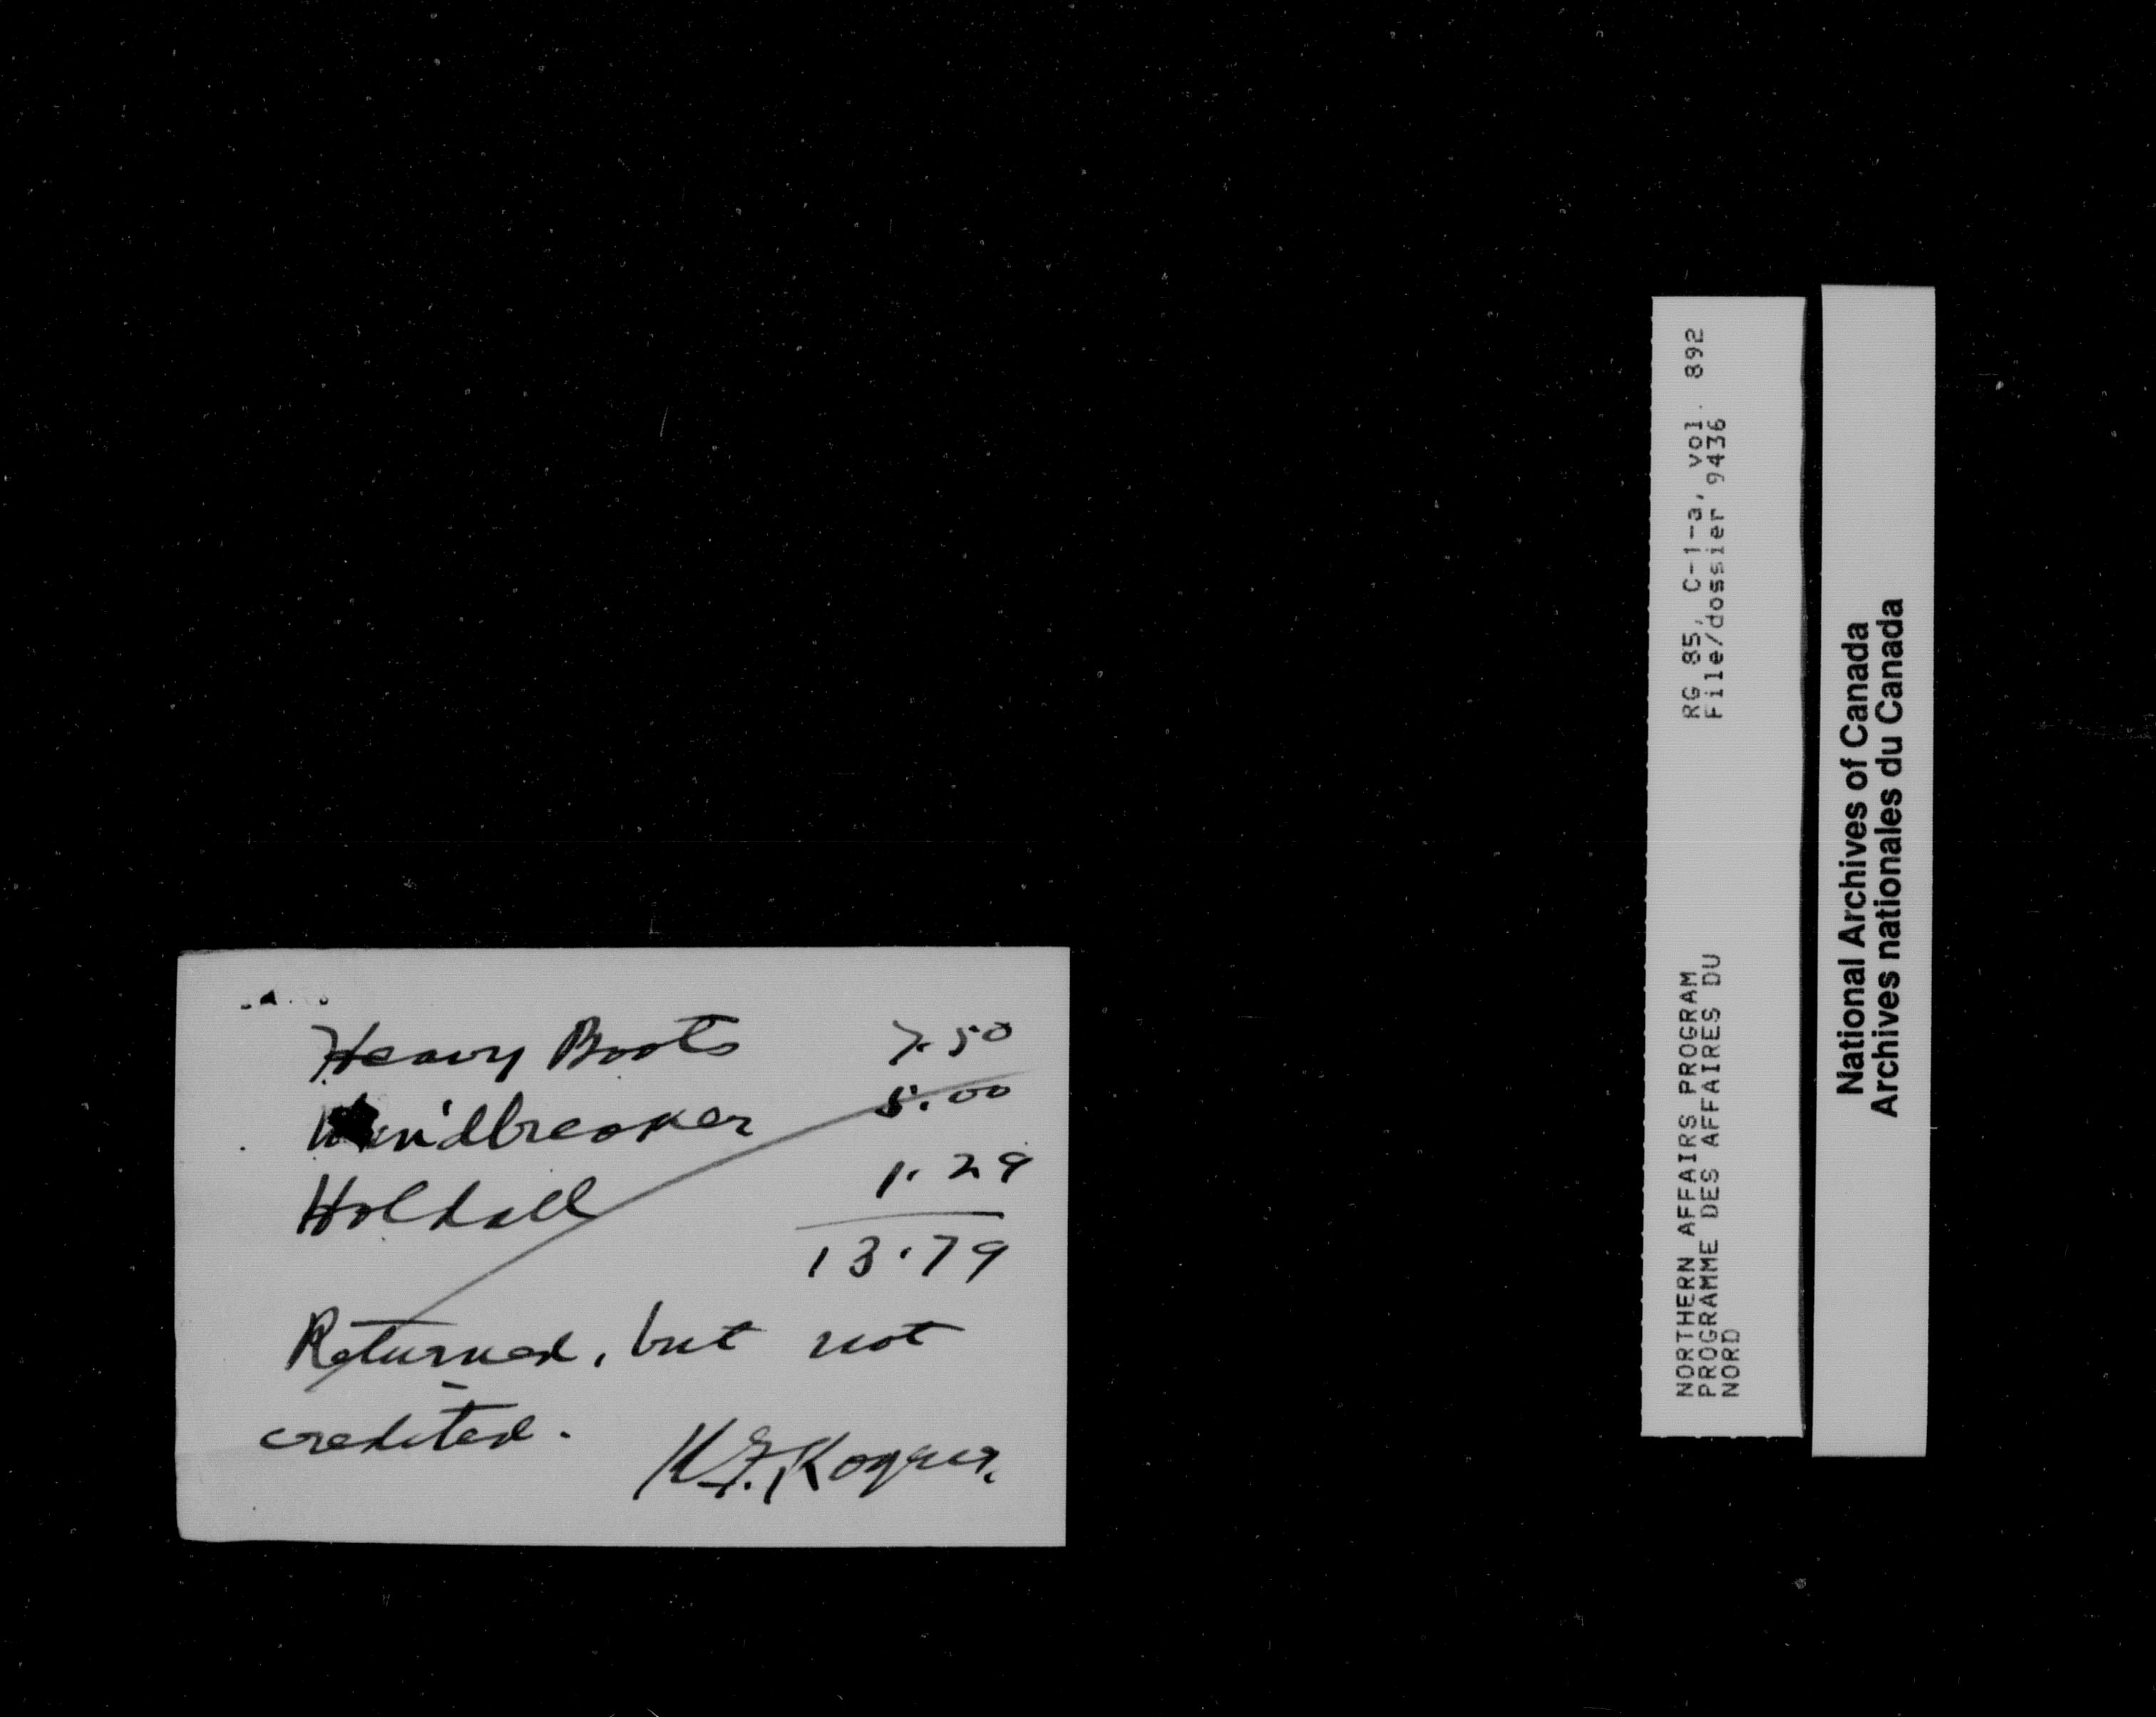 Heavy Boots 7.50
Windbreaker 5.00
Holdall 1.29
13.79
Returned, but not
credited.
RG 85, C-1-a, vol. 892
File/dossier 9436
NORTHERN AFFAIRS PROGRAM
PROGRAMME DES AFFAIRES DU
NORD
National Archives of Canada
Archives nationales du Canada